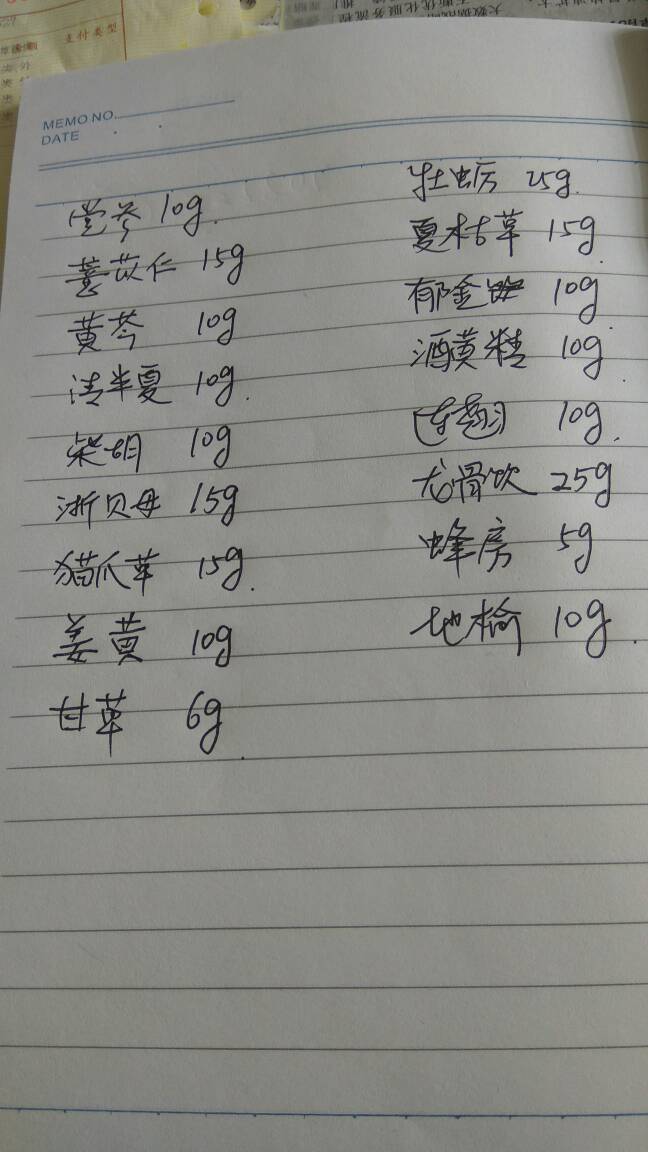 支付类型
MEMO NO.
DATE
党参 10g.
薏苡仁 15g
黄芩 10g
清半夏 10g.
柴胡 10g
浙贝母 15g
猫爪草 15g.
姜黄 10g
甘草 6g.
牡蛎 25g.
夏枯草 15g.
郁金 10g
酒黄精 10g.
连翘 10g.
龙骨饮 25g
蜂房 5g
地榆 10g.